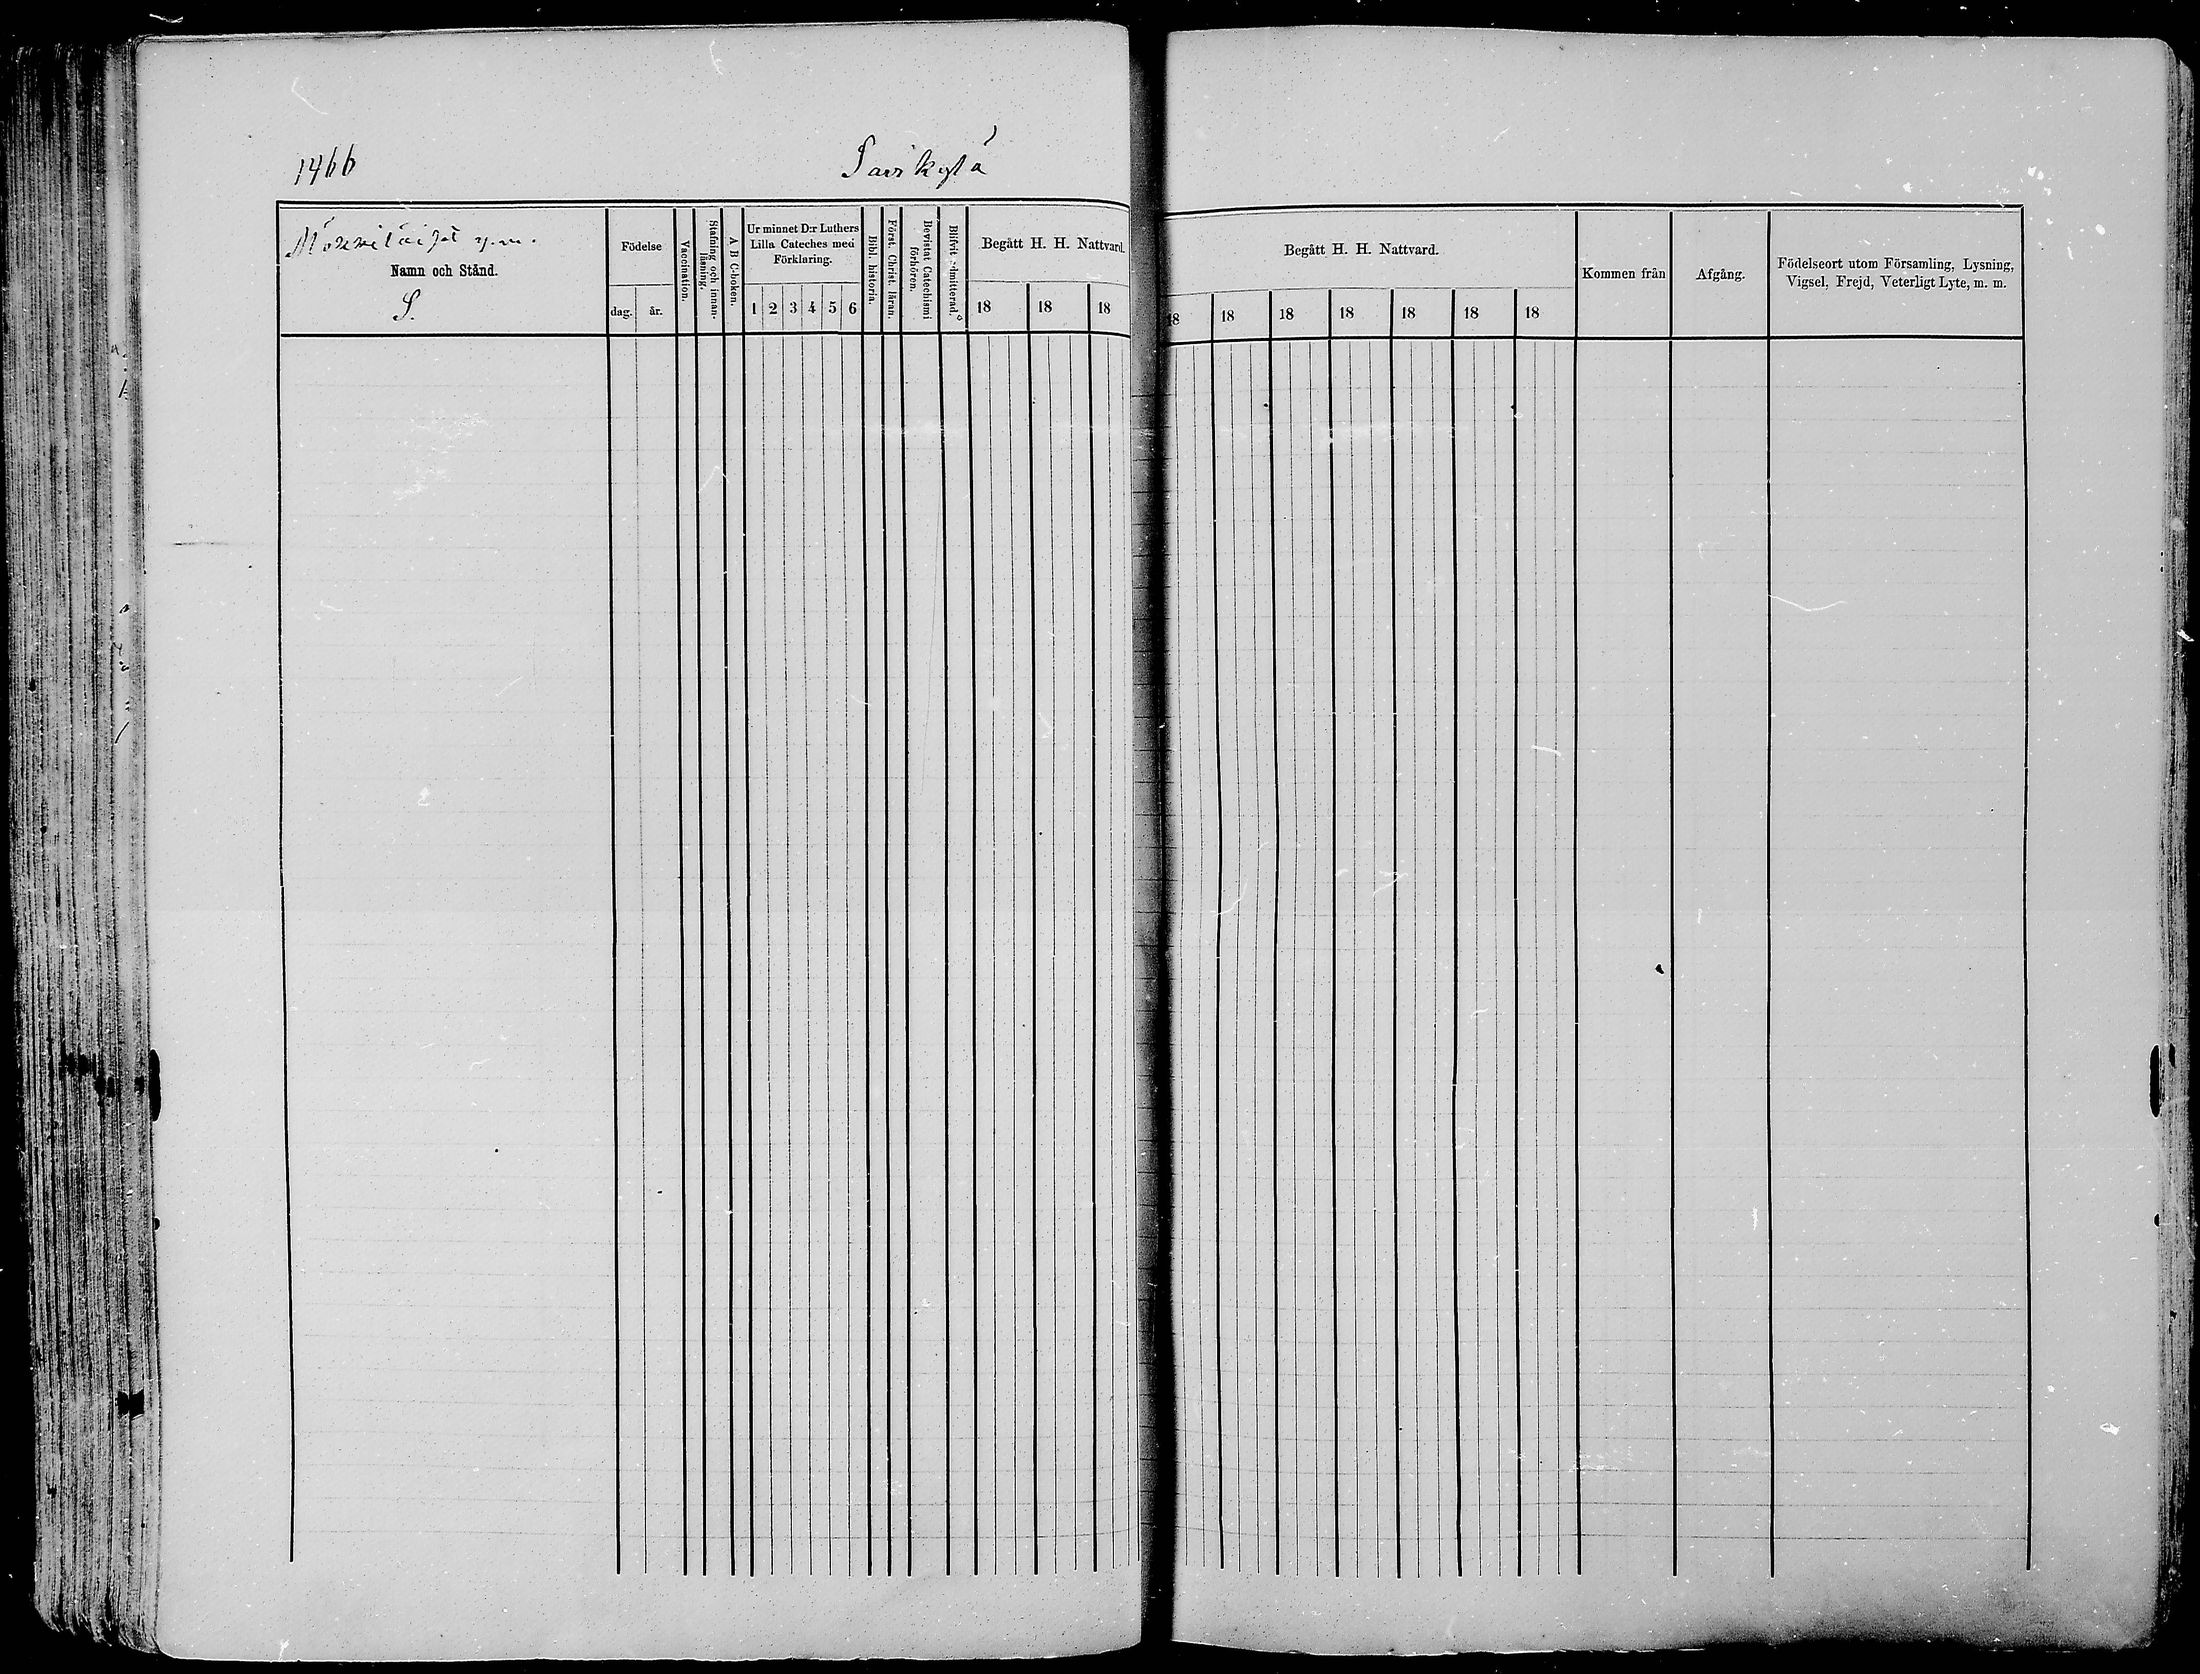 1466
Savikylä
Mökkiläiset y.m.
Namn och Stånd.
S.
Födelse
dag. år.
Vaccination.
Stafning och innan-
läsning.
A B C-boken.
Ur minnet D:r Luthers
Lilla Cateches med
Förklaring.
1 2 3 4 5 6
Bibl. historia.
Först. Christ. läran.
Bevistat Catechismi
förhören.
Blifvit Admitterad.
Begått H. H. Nattvard.
18 18 18
Begått H. H. Nattvard.
18 18 18 18 18 18 18
Kommen från
Afgång.
Födelseort utom Församling, Lysning,
Vigsel, Frejd, Veterligt Lyte, m. m.